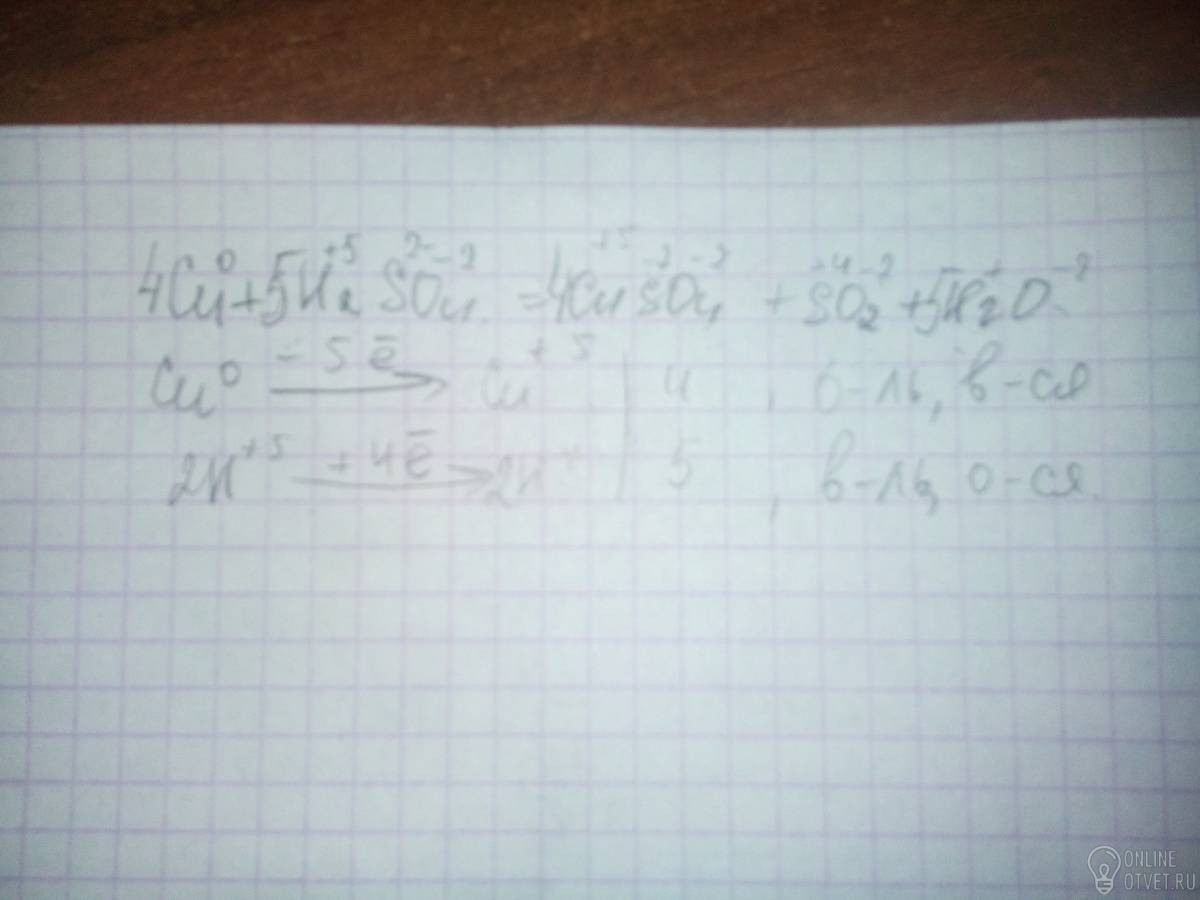 4Cu⁰ + 5H₂⁺⁵ S⁻²O₄⁻² = 4Cu⁺⁵ S⁻²O₄⁻² + S⁺⁴O₂⁻² + 5H₂⁺O⁻²
Cu⁰ −5ē → Cu⁺⁵ | 4 , о-ль, в-ся
2H⁺⁵ +4ē → 2H⁺ | 5 , в-ль, о-ся
ONLINE
OTVET.RU